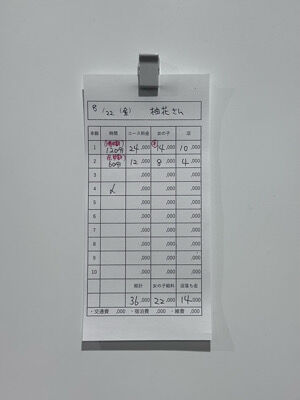 8/22 (金) 柚花さん
本数 時間 コース料金 女の子 店
1 120分 24,000 14,000 10,000
2 60分 12,000 8,000 4,000
3 ,000 ,000 ,000
4 〆 ,000 ,000 ,000
5 ,000 ,000 ,000
6 ,000 ,000 ,000
7 ,000 ,000 ,000
8 ,000 ,000 ,000
9 ,000 ,000 ,000
10 ,000 ,000 ,000
総計 女の子給料 店落ち金
36,000 22,000 14,000
・交通費 ,000 ・宿泊費 ,000 ・雑費 ,000